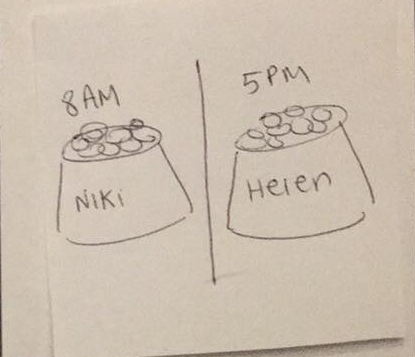 8AM
NIKI
5PM
Helen